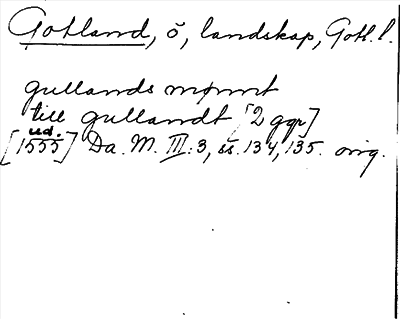 Gotland, ö, landskap, Gotl. l.
gullands mønt
till gullandt [2 ggr]
ud.
[1555] Da. M. III: 3, ss. 134, 135. orig.